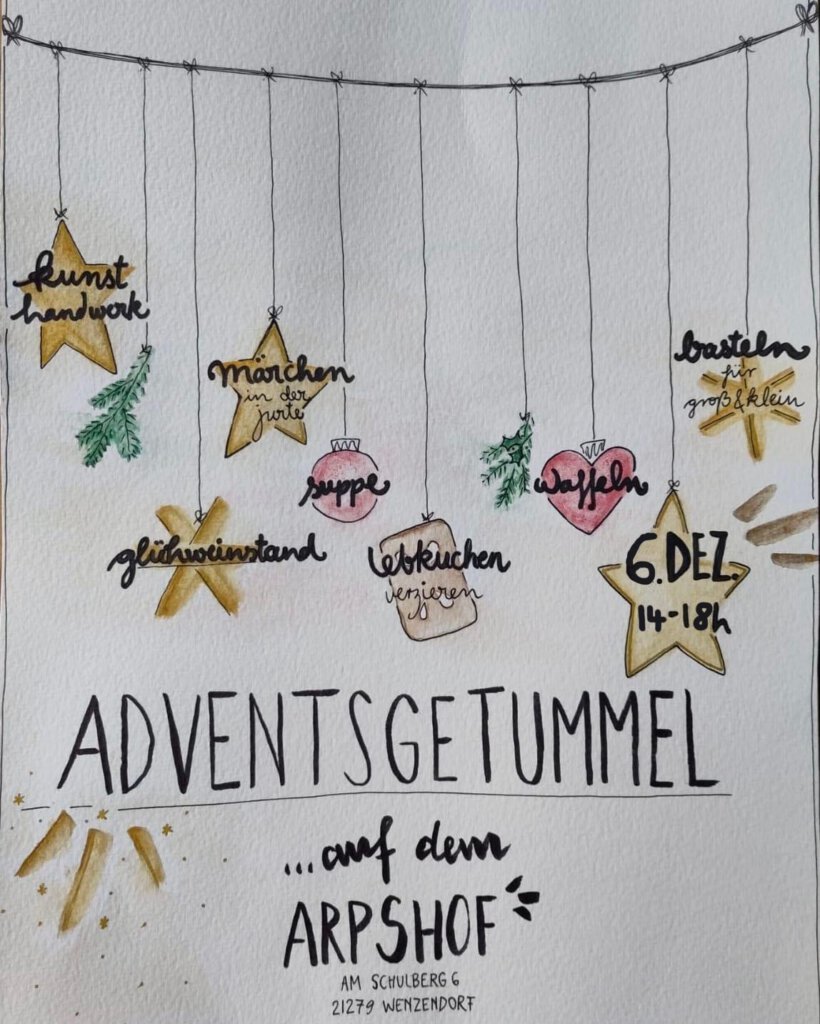 kunst
handwerk
märchen
in der
jurte
basteln
für
groß & klein
suppe
waffeln
glühweinstand
lebkuchen
verzieren
6. DEZ.
14-18h
ADVENTSGETUMMEL
...auf dem
ARPSHOF
AM SCHULBERG 6
21279 WENZENDORF